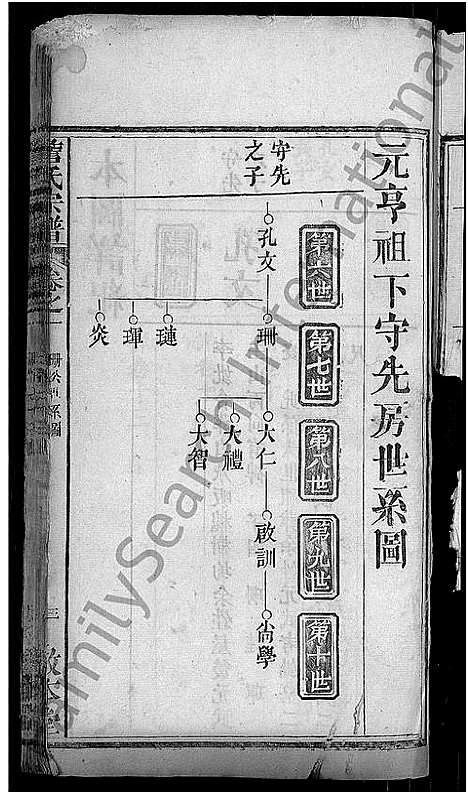 元亨祖下守先房世系圖
第六世
第七世
第八世
第九世
第十世
守先
之子
孔文
珊
璉
琿
炎
大仁
大禮
大智
啟訓
尚學
曾氏宗譜
卷之
三
敦本堂
FamilySearch International